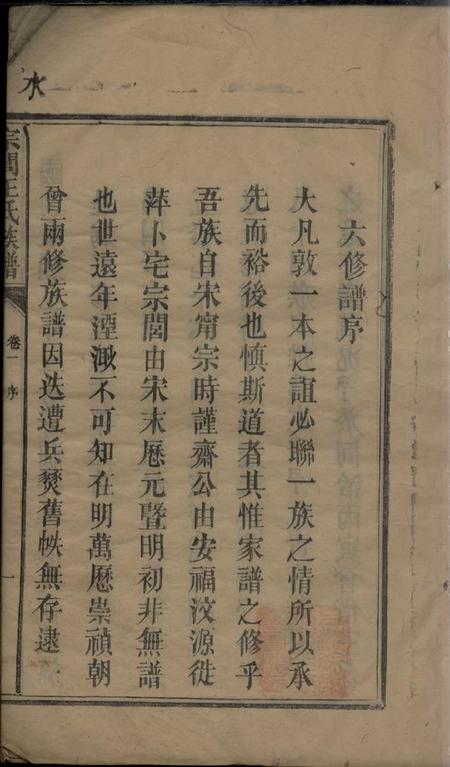 六修譜序
大凡敦一本之誼必聯一族之情所以承
先而裕後也慎斯道者其惟家譜之修乎
吾族自宋甯宗時謹齋公由安福汶源徙
萍卜宅宗閭由宋末厯元暨明初非無譜
也世遠年湮溦不可知在明萬厯崇禎朝
曾兩修族譜因迭遭兵燹舊帙無存逮
宗閭王氏族譜
卷一
序
一
水